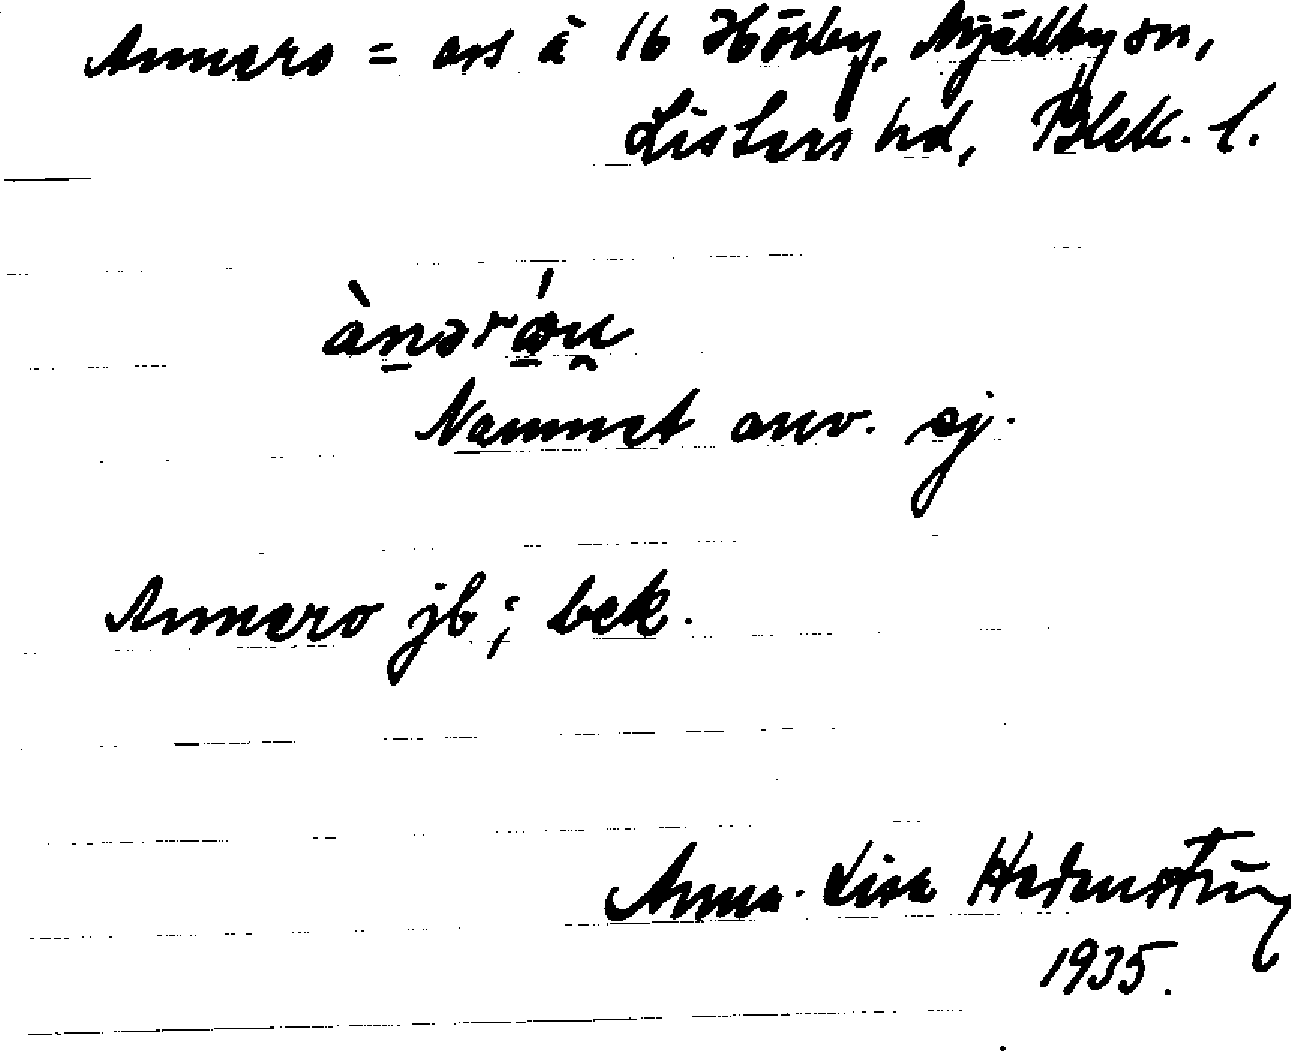 Annero = ars à 16 Hörby, Mjällby sn,
Listers hd, Blek. l.
ànərǿu̯
Namnet anv. ej.
Annero jb; bek.
Anna-Lisa Hedenstierna
1935.